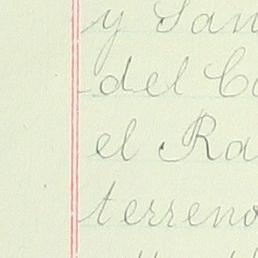 y San
del Co
el Ra
terreno